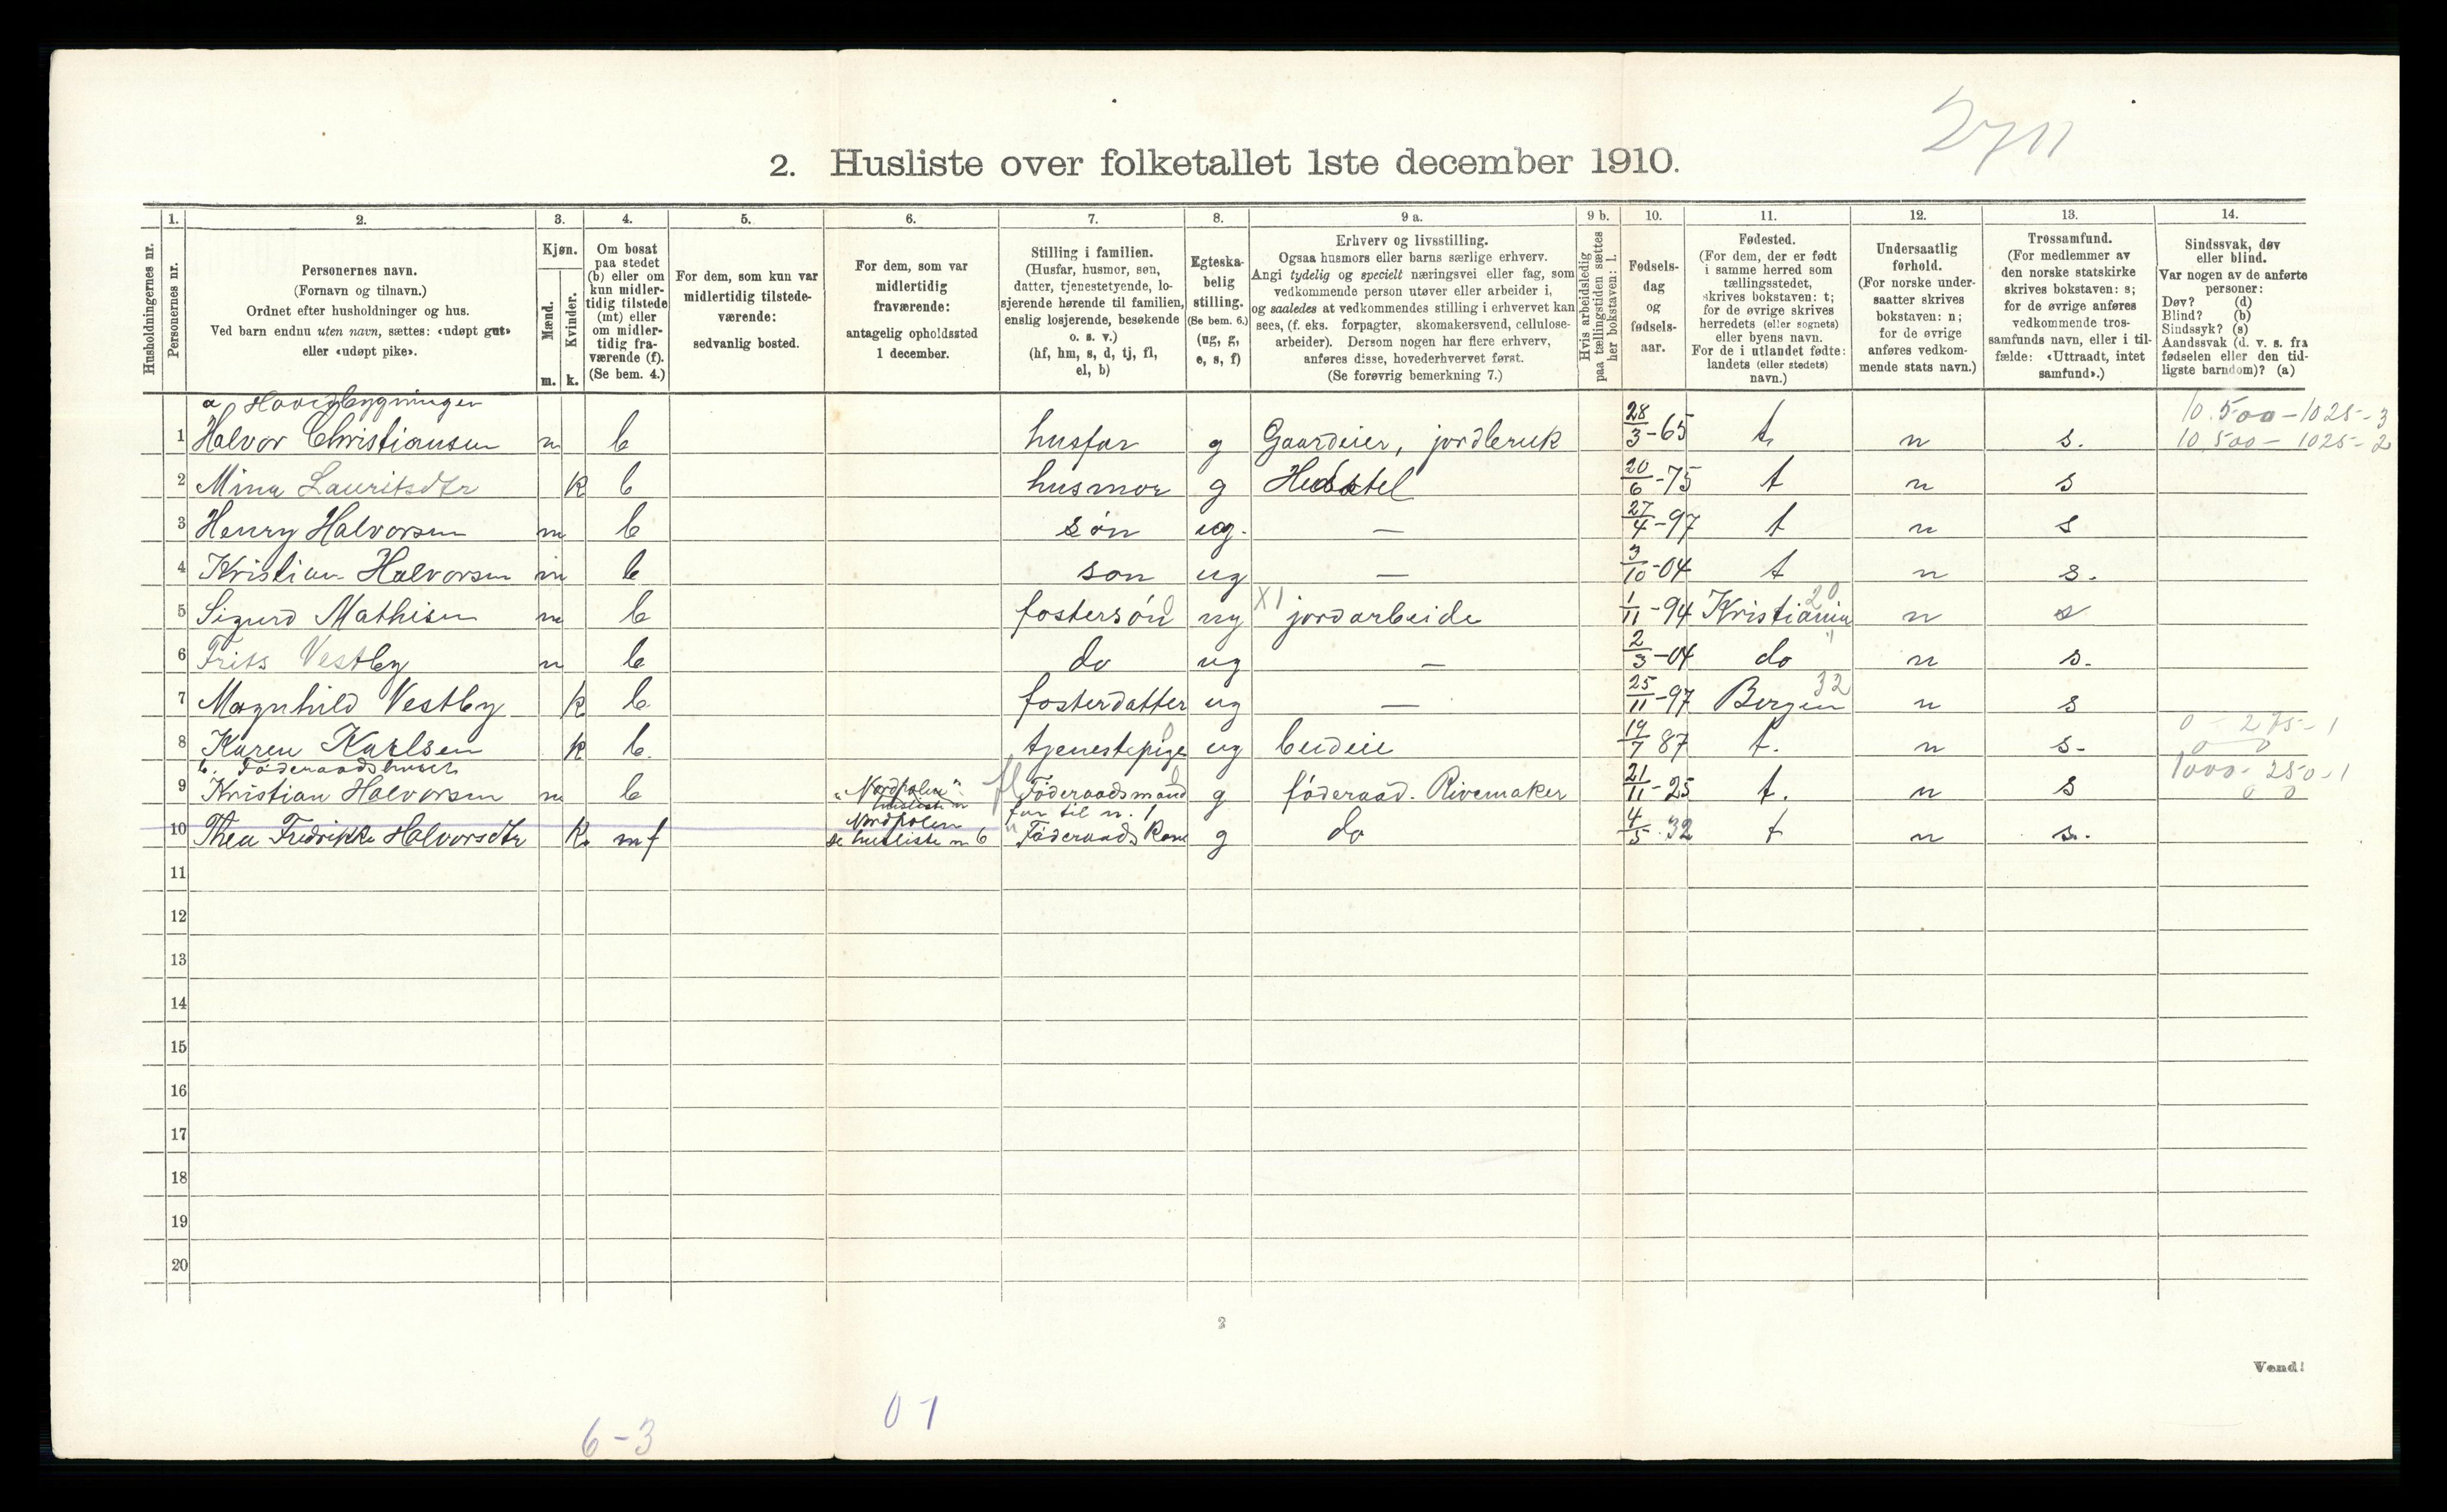 2711
2. Husliste over folketallet 1ste december 1910.
Husholdningernes nr.
1. Personernes nr.
2. Personernes navn. (Fornavn og tilnavn.) Ordnet efter husholdninger og hus. Ved barn endnu uten navn, sættes: «udøpt gut» eller «udøpt pike».
3. Kjøn. Mænd. m. Kvinder. k.
4. Om bosat paa stedet (b) eller om kun midlertidig tilstede (mt) eller om midlertidig fraværende (f). (Se bem. 4.)
5. For dem, som kun var midlertidig tilstedeværende: sedvanlig bosted.
6. For dem, som var midlertidig fraværende: antagelig opholdssted 1 december.
7. Stilling i familien. (Husfar, husmor, søn, datter, tjenestetyende, losjerende hørende til familien, enslig losjerende, besøkende o. s. v.) (hf, hm, s, d, tj, fl, el, b)
8. Egteskabelig stilling. (Se bem. 6.) (ug, g, e, s, f)
9 a. Erhverv og livsstilling. Ogsaa husmors eller barns særlige erhverv. Angi tydelig og specielt næringsvei eller fag, som vedkommende person utøver eller arbeider i, og saaledes at vedkommendes stilling i erhvervet kan sees, (f. eks. forpagter, skomakersvend, cellulosearbeider). Dersom nogen har flere erhverv, anføres disse, hovederhvervet først. (Se forøvrig bemerkning 7.)
9 b. Hvis arbeidsledig paa tællingstiden sættes her bokstaven: l.
10. Fødselsdag og fødselsaar.
11. Fødested. (For dem, der er født i samme herred som tællingsstedet, skrives bokstaven: t; for de øvrige skrives herredets (eller sognets) eller byens navn. For de i utlandet fødte: landets (eller stedets) navn.)
12. Undersaatlig forhold. (For norske undersaatter skrives bokstaven: n; for de øvrige anføres vedkommende stats navn.)
13. Trossamfund. (For medlemmer av den norske statskirke skrives bokstaven: s; for de øvrige anføres vedkommende trossamfunds navn, eller i tilfælde: «Uttraadt, intet samfund».)
14. Sindssvak, døv eller blind. Var nogen av de anførte personer: Døv? (d) Blind? (b) Sindssyk? (s) Aandssvak (d. v. s. fra fødselen eller den tidligste barndom)? (a)
a Hovedbygningen 10.500-1025-3
1 Halvor Christiansen m b husfar g Gaardeier, jordbruk 28/3-65 t. n s. 10.500-1025-2
2 Mina Lauritsdtr k b husmor g 20/6-75 t n s
3 Henry Halvorsen m b søn ug. — 27/4-97 t n s
4 Kristian Halvorsen m b søn ug — 3/10-04 t n s.
5 Sigurd Mathisen m b fostersøn ug X1 jordarbeide 1/11-94 Kristiania 20 n s
6 Frits Vestby m b do ug — 2/3-04 do " n s.
7 Magnhild Vestby k b fosterdatter ug — 25/11-97 Bergen 32 n s
8 Karen Karlsen k b. tjenestepige ug budeie 19/7 87 t. n s- 0-275-1
b. Føderaadshuset 0 0
9 Kristian Halvorsen m b "Nordpolen" husliste n fl Føderaadsmand far til n. 1 g føderaad. Rivemaker 21/11-25 t. n s 1000-250-1 0 0
10 Thea Fredrikke Halvorsdtr k. mf Nordpolen se husliste n 6 " Føderaads Kone g do 4/5.32 t n s.
11
12
13
14
15
16
17
18
19
20
2
Vend!
6-3
0 1